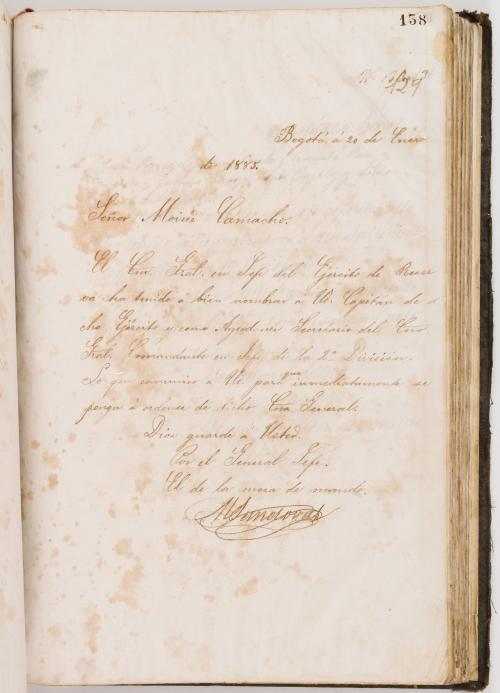 158
429
Bogotá, á 20 de Enero
de 1885.
Señor Moisés Camacho.
El Ciu. Gral. en Jefe del Ejército de Reser
va ha tenido á bien nombrar á Ud. Capitán de d
cho Ejército y como Ayudante Secretario del Ciu.
Gral. Comandante en Jefe de la 2ª División.
Lo que comunico á Ud. para que inmediatamente se
ponga á ordenes de dicho General.
Dios guarde á Usted.
Por el General Jefe.
El de la mesa de mando.
M Sandoval